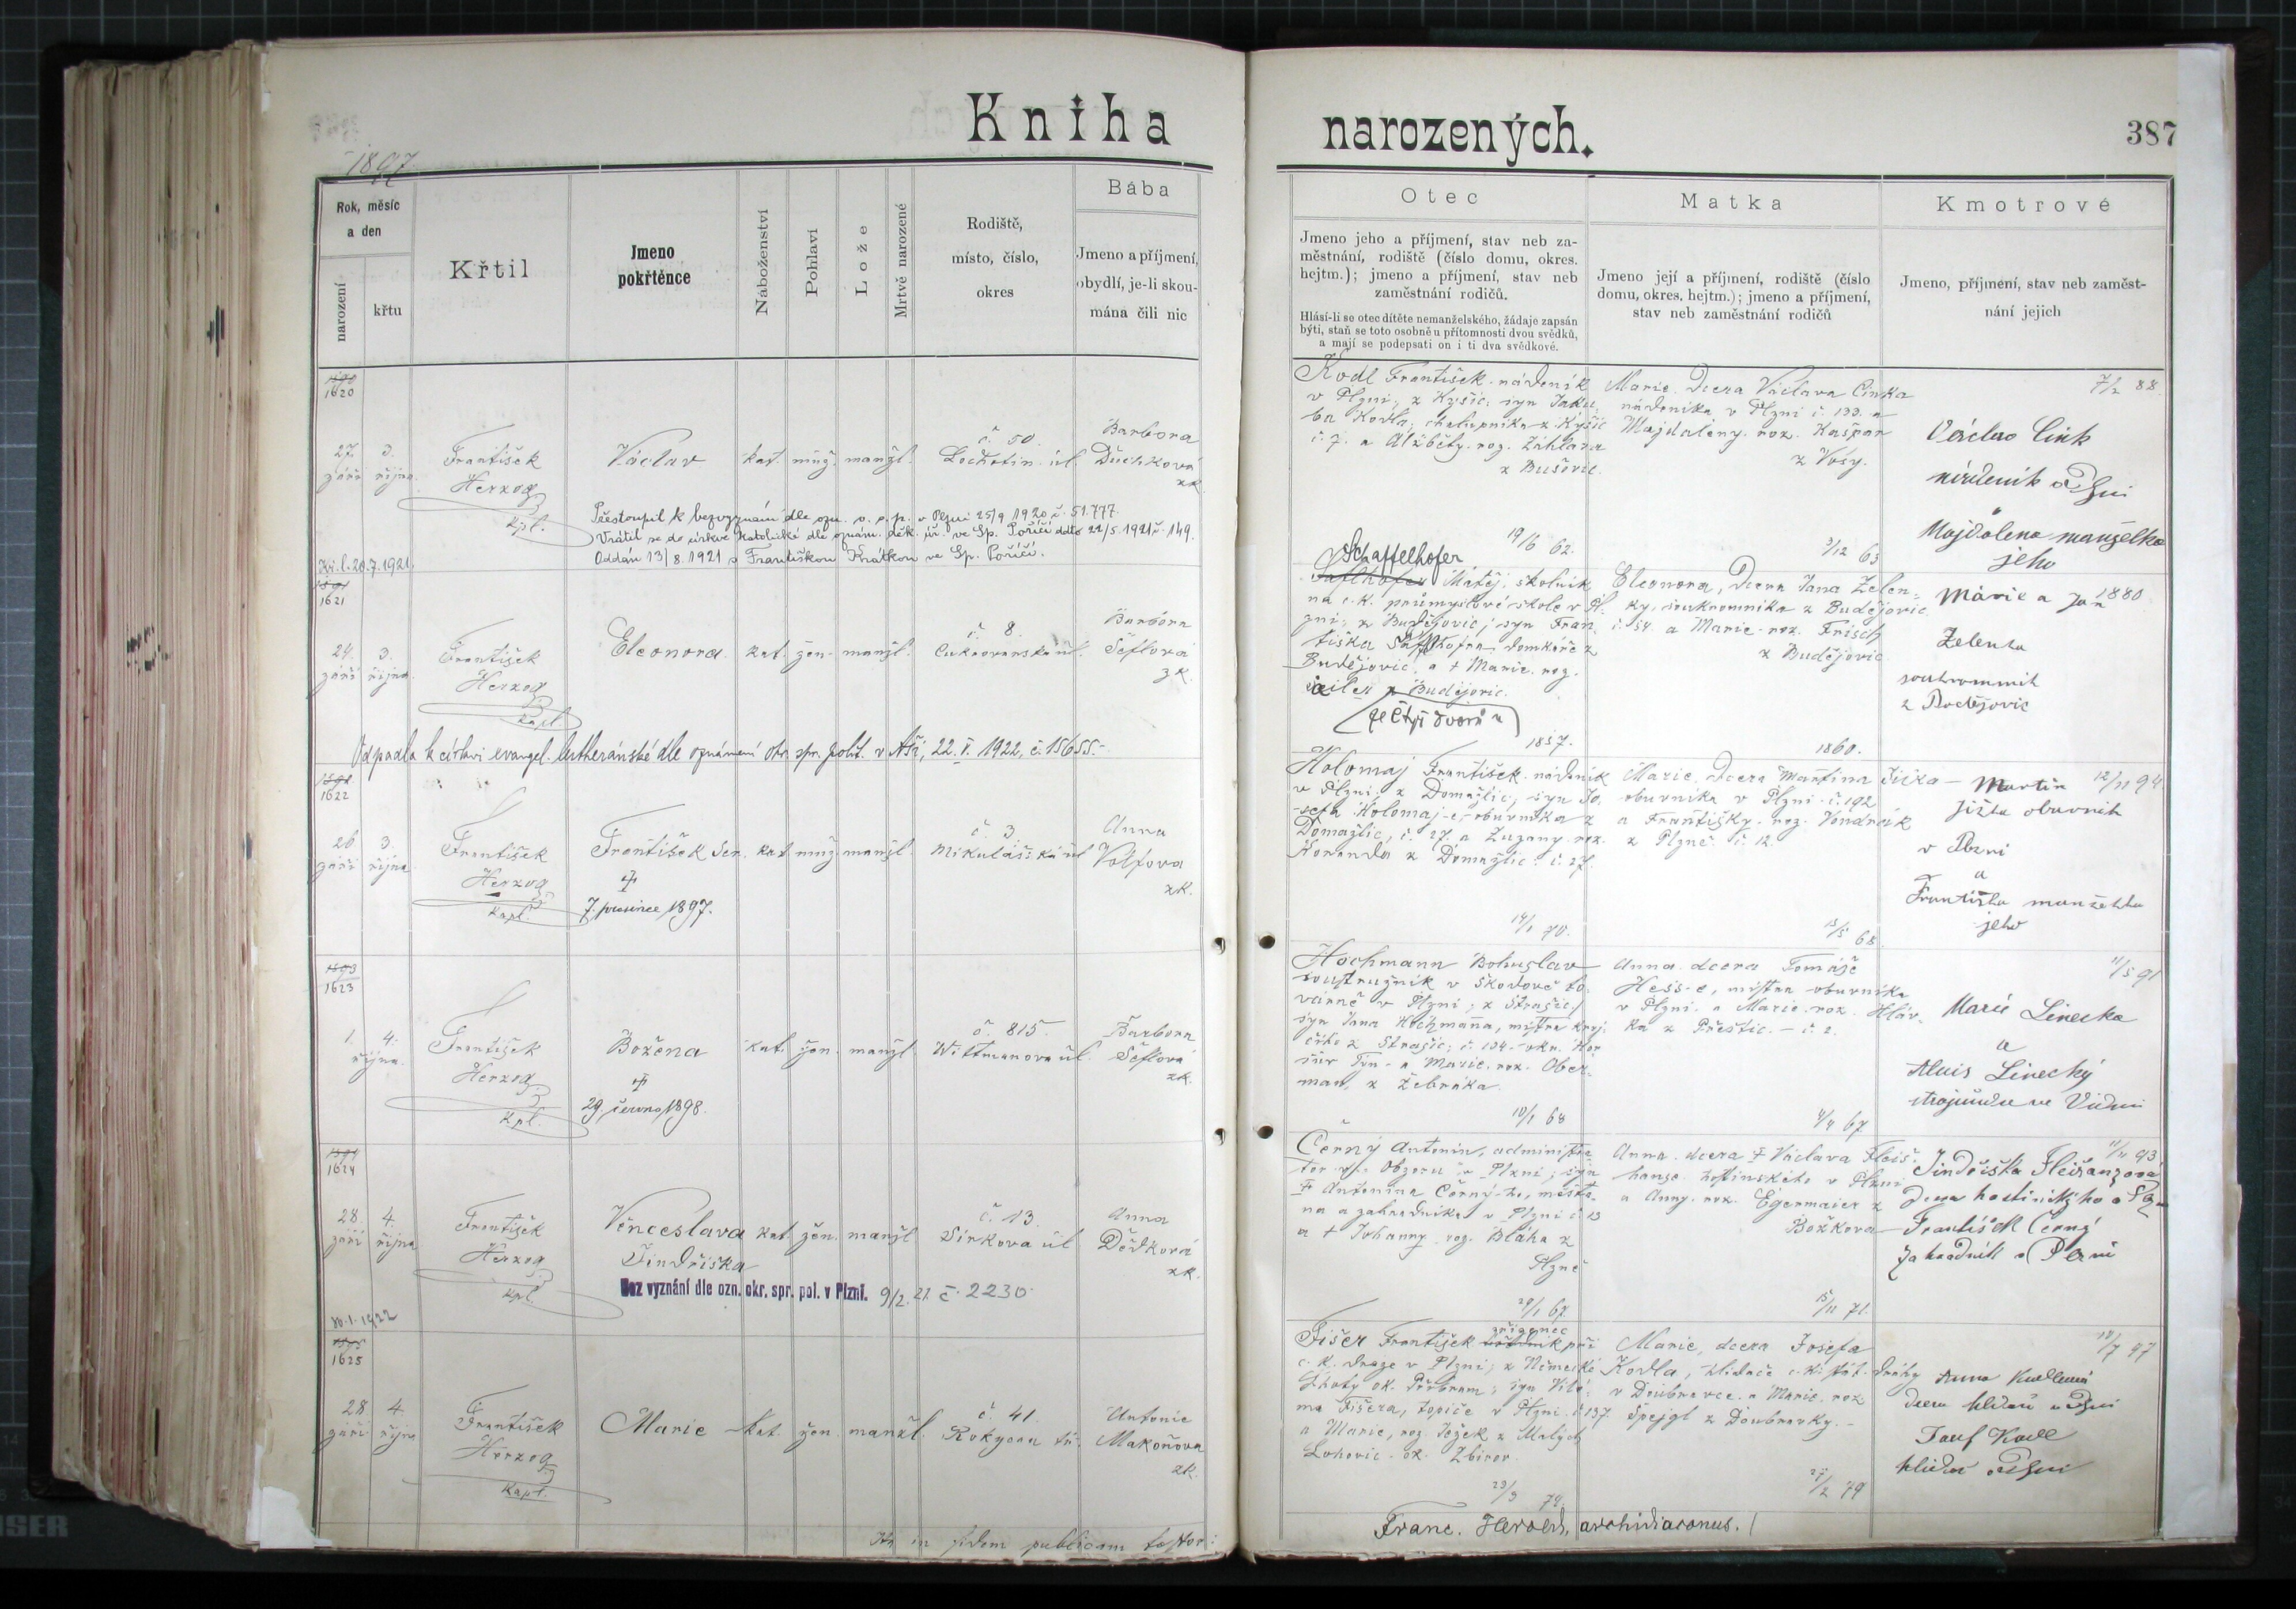 Kniha narozených.
387
1897
Rok, měsíc
a den
narození
křtu
Křtil
Jmeno
pokřtěnce
Náboženství
Pohlaví
Lože
Mrtvě narozené
Rodiště,
místo, číslo,
okres
Bába
Jmeno a příjmení,
obydlí, je-li skou-
mána čili nic
Otec
Jmeno jeho a příjmení, stav neb za-
městnání, rodiště (číslo domu, okres.
hejtm.); jmeno a příjmení, stav neb
zaměstnání rodičů.
Hlásí-li se otec dítěte nemanželského, žádaje zapsán
býti, staň se toto osobně u přítomnosti dvou svědků,
a mají se podepsati on i ti dva svědkové.
Matka
Jmeno její a příjmení, rodiště (číslo
domu, okres. hejtm.); jmeno a příjmení,
stav neb zaměstnání rodičů
Kmotrové
Jmeno, příjmení, stav neb zaměst-
nání jejich
1620
27. září
3. října
František
Herzog
kpl.
Václav
kat. muž. manžl.
č. 50.
Lochotín. úl.
Barbora
Duchková
zk.
Přestoupil k bezvyznání dle ozn. o. s. p. v Plzni 25/9 1920 č. 51.777.
Vrátil se do církve katolické dle oznám. děk. úř. ve Sp. Poříčí ddto 22/5. 1921 č. 149.
Oddán 13/8. 1921 s Františkou Krátkou ve Sp. Poříčí.
Kř. l. 20.7.1921.
Kodl František nádeník
v Plzni, z Kyšic, syn Jaku-
ba Kodla, chalupníka z Kyšic
č. 7. a Alžběty roz. Záhlava
z Bušovic.
19/6 62.
Marie dcera Václava Cinka
nádeníka v Plzni č. 133. a
Majdaleny roz. Kašpar
z Vosy.
3/12 63
7/2 88.
Václav Cink
nádeník v Plzni
a
Majdalena manželka
jeho
1621
24. září
3. října
František
Herzog
kapl.
Eleonora
kat. žen. manžl.
č. 8.
Cukrovarská úl.
Barbora
Šeflová
zk.
Odpadla k církvi evangel. lutheránské dle oznámení okr. spr. polit. v Aši, 22. V. 1922, č. 15655.-
Schaffelhofer
Matěj, školník
na c.k. průmyslové škole v Pl-
zni, z Budějovic, syn Fran-
tiška Šaflhofra, domkáře z
Budějovic a + Marie roz.
z Budějovic.
ze Čtyř dvorů
1857.
Eleonora, dcera Jana Zelen-
ky, soukromníka z Budějovic
č. 54. a Marie roz. Frisch
z Budějovic
1860.
1880
Marie a Jan
Zelenka
soukromník
z Budějovic
1622
26. září
3. října
František
Herzog
kapl.
František Ser.
kat. muž. manžl.
č. 3
Mikulášská úl.
Anna
Volfova
zk.
7. prosince 1897.
Holomaj František nádeník
v Plzni, z Domažlic, syn Jo-
sefa Holomaj-e, obuvníka z
Domažlic, č. 27. a Zuzany roz.
Koranda z Domažlic č. 27.
14/1 70.
Marie, dcera Martina Jíška
obuvníka v Plzni č. 192
a Františky roz. Vondrák
z Plzně č. 12.
13/5 68.
12/11 94.
Martin
Jíška obuvník
v Plzni
a
Františka manželka
jeho
1623
1. 4. října.
František
Herzog
kpl.
Božena
kat. žen. manžl.
č. 815.
Wittmanova úl.
Barbora
Šeflová
zk.
29. června 1898.
Hochmann Bohuslav
soustružník v Škodově to-
várně v Plzni; z Strašic,
syn Jana Hochmanna, mistra krej-
čího z Strašic, č. 134. okr. Hor-
šův Týn a Marie roz. Ober-
man, z Žebráka.
10/1 68
Anna dcera Tomáše
Hess-e, mistra obuvníka
v Plzni a Marie roz. Hláv-
ka z Přeštic. – č. 2.
4/4 67
11/5 91
Marie Linecka
a
Alois Linecký
1624
28. září
4. října
František
Herzog
kpl.
Věnceslava
Jindřiška
kat. žen. manžl.
č. 13.
Sirkova úl.
Anna
Dědková
zk.
Bez vyznání dle ozn. okr. spr. pol. v Plzni. 9/2. 21. č. 2230.
30.1.1922
Černý Antonín, administra-
tor „Pl. Obzoru“ v Plzni; syn
+ Antonína Černý-ho, měšťa-
na a zahradníka v Plzni č. 13
a + Johanny roz. Bláha z
Plzně
29/1 67
Anna dcera + Václava Fleiš-
hanse hostinského v Plzni
a Anny roz. Egermaier z
Božkova
15/11 71.
11/4 93
Jindřiška Fleišanzová
dcera hostinského v Plzni
František Černý
zahradník v Plzni
1625
28. září
4. října
František
Herzog
Kapl.
Marie
kat. žen. manžl.
č. 41.
Rokycan. tř.
Antonie
Makoňova
zk.
zřízenec
Fišer František při
c. k. draze v Plzni, z Německé
Lhoty ok. Příbram; syn Vilé-
ma Fišera, topiče v Plzni č. 137.
a Marie, roz. Ježek z Malých
Lohovic ok. Zbirov.
23/3 72.
Marie, dcera Josefa
Kodla, hlídače c. k. stát. dráhy
v Doubravce a Marie roz.
Špejgl z Doubravky. –
25/2 79
18/7 97
Anna Kodlová
dcera hlídače v Plzni
Josef Kodl
hlídač v Plzni
In fidem publicam testor:
Franc. Herold, archidiaconus.